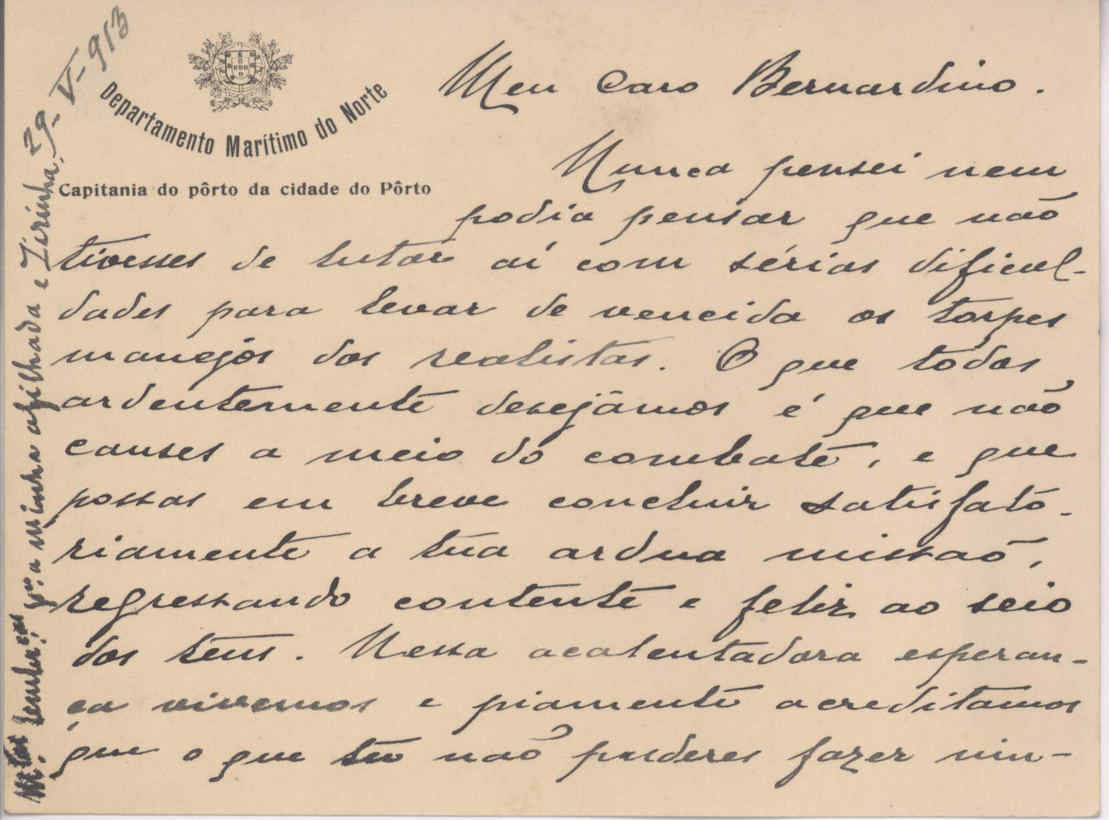 29-V-913
Departamento Marítimo do Norte
Capitania do pôrto da cidade do Pôrto
Meu caro Bernardino.
Nunca pensei nem
podia pensar que não
tivesses de lutar aí com sérias dificul-
dades para levar de vencida os torpes
manejos dos realistas. O que todos
ardentemente desejâmos é que não
canses a meio do combate, e que
possas em breve concluir satisfató-
riamente a tua ardua missão,
regressando contente e feliz ao seio
dos teus. Nessa acalentadora esperan-
ça vivemos e piamente acreditamos
que o que tu não puderes fazer nin-
M.tas lembr.ças p.ª a minha afilhada e Zirinha.